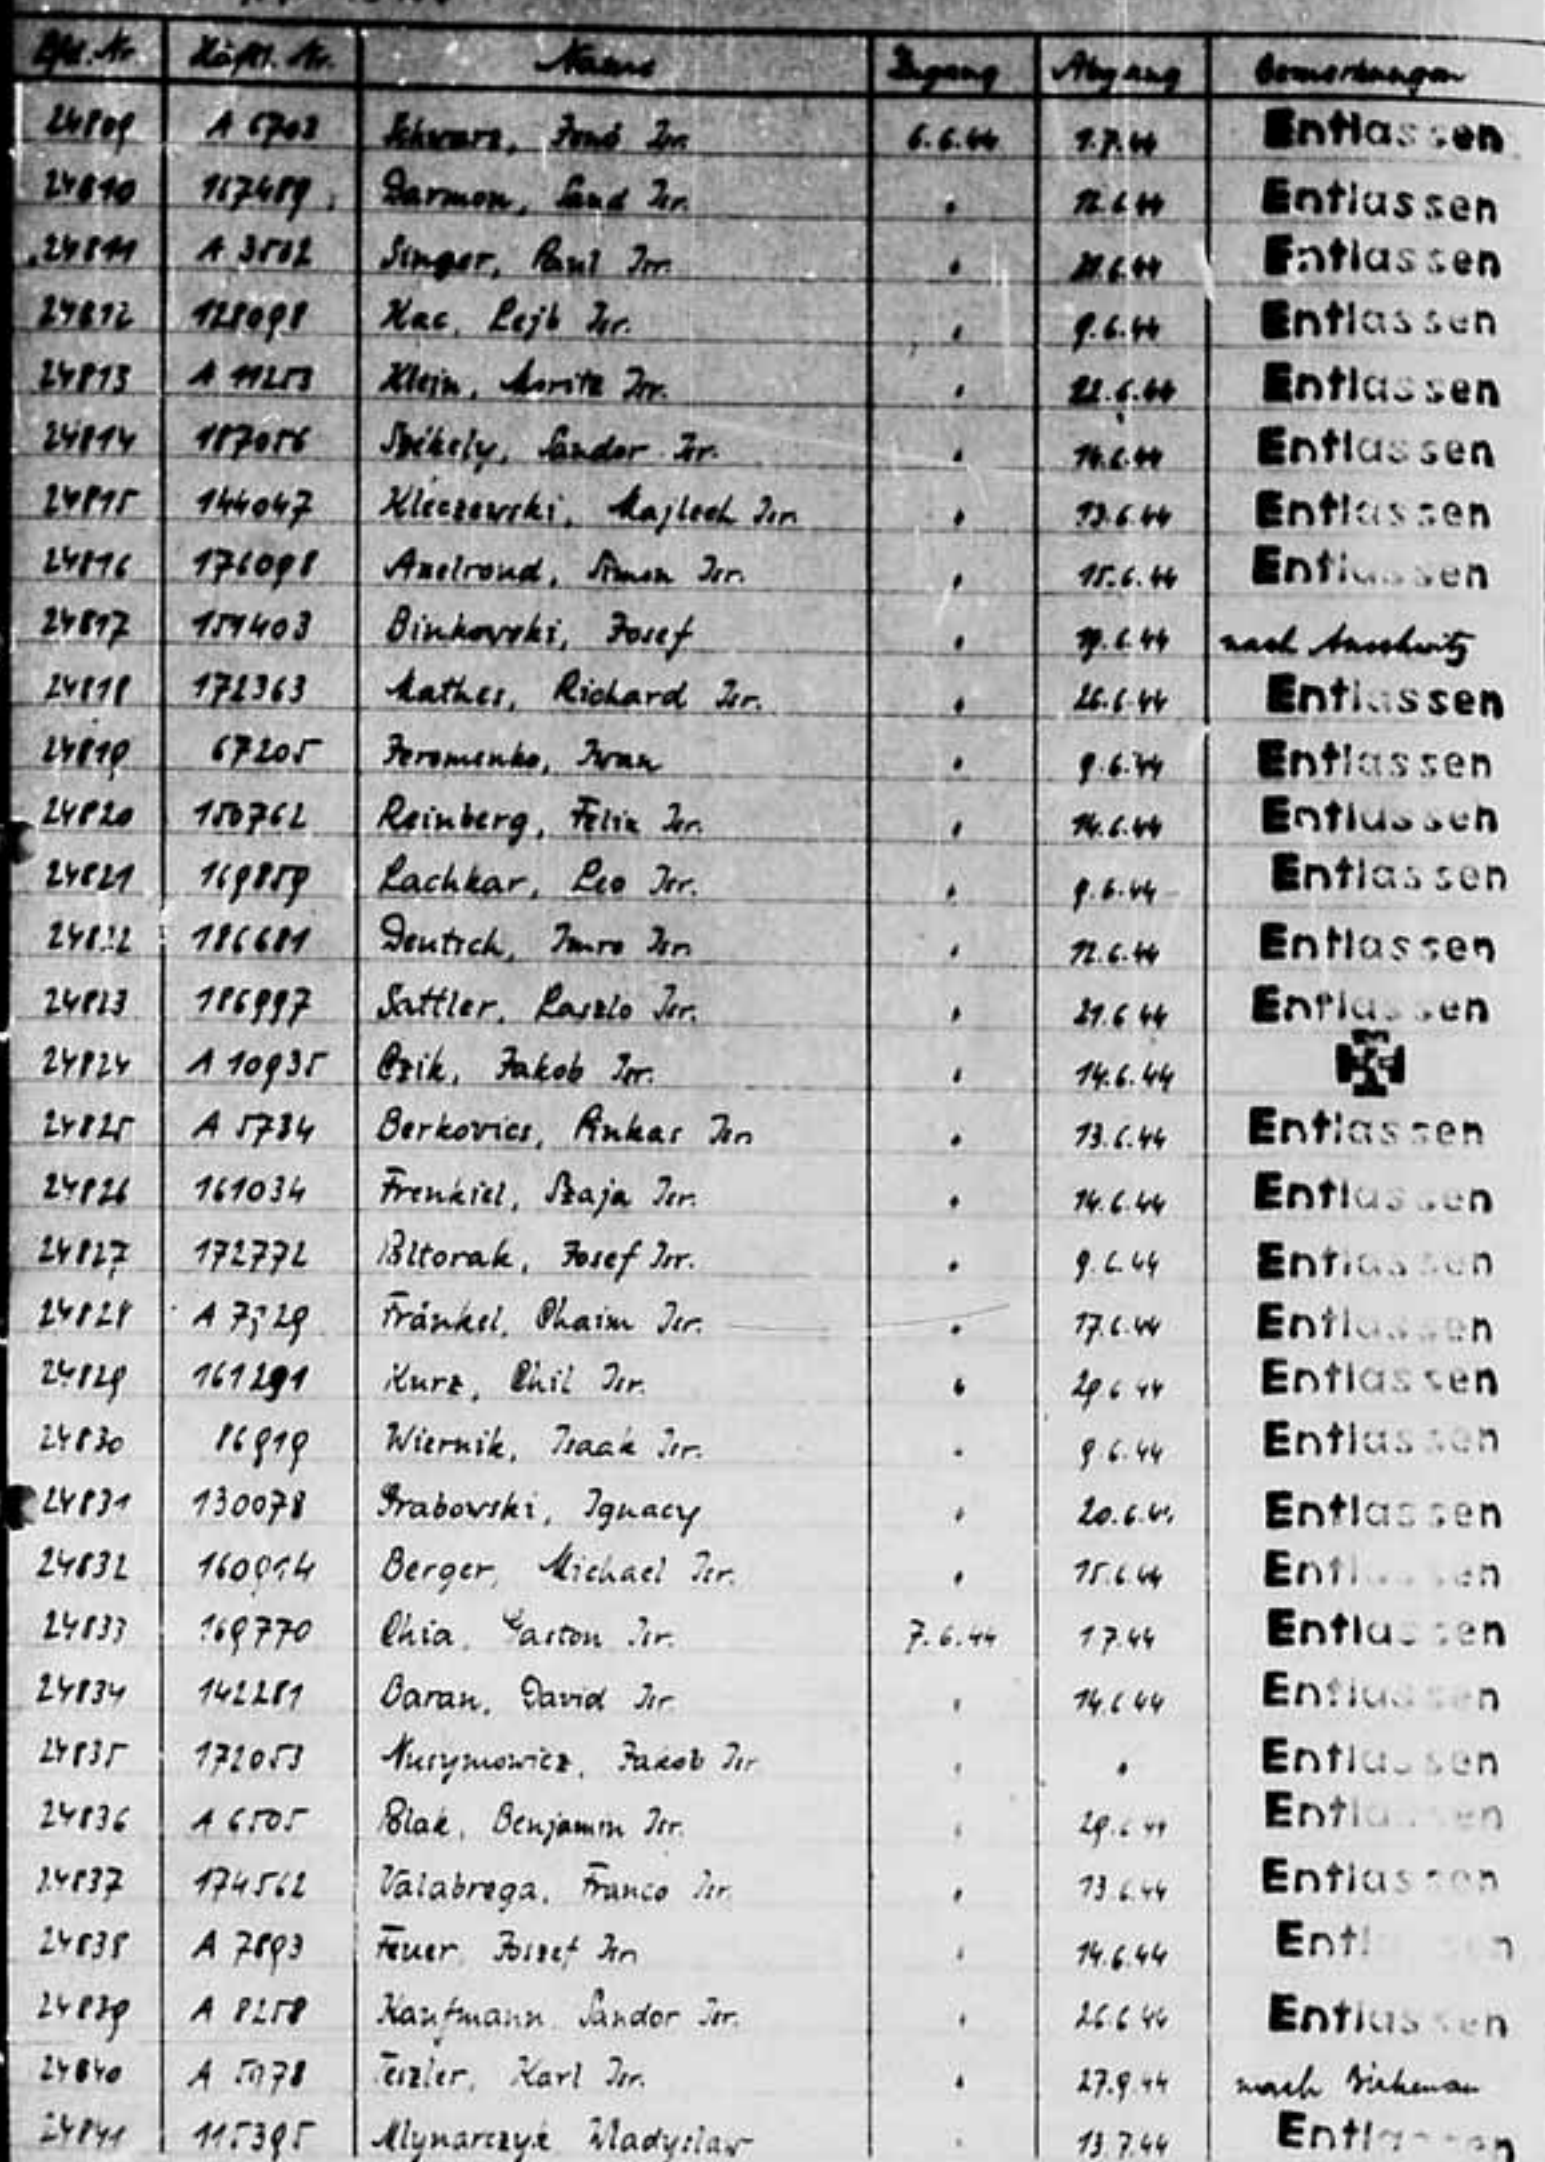 Lfd. Nr. Häftl. Nr. Name Zugang Abgang Bemerkungen
24809 A 6703 Schwarz, Jenö Isr. 6.6.44 1.7.44 Entlassen
24810 167489 Darmon, Isr. " 12.6.44 Entlassen
24811 A 3562 Singer, Paul Isr. " 21.6.44 Entlassen
24812 128098 Kac, Lejb Isr. " 9.6.44 Entlassen
24813 A 11253 Klein, Moritz Isr. " 22.6.44 Entlassen
24814 187056 Székely, Sandor Isr. " 14.6.44 Entlassen
24815 144047 Kleczewski, Majlech Isr. " 13.6.44 Entlassen
24816 176098 Axelroud, Simon Isr. " 15.6.44 Entlassen
24817 151403 Binkowski, Josef " 19.6.44 nach Auschwitz
24818 172363 Mathes, Richard Isr. " 26.6.44 Entlassen
24819 67205 Jeromenko, Iwan " 9.6.44 Entlassen
24820 150762 Reinberg, Felix Isr. " 14.6.44 Entlassen
24821 169859 Lachkar, Leo Isr. " 9.6.44 Entlassen
24822 186681 Deutsch, Imre Isr. " 12.6.44 Entlassen
24823 186997 Sattler, Laszlo Isr. " 21.6.44 Entlassen
24824 A 10935 Czik, Jakob Isr. " 14.6.44
24825 A 5734 Berkovics, Pinkas Isr. " 13.6.44 Entlassen
24826 161034 Frenkiel, Szaja Isr. " 14.6.44 Entlassen
24827 172772 Poltorak, Josef Isr. " 9.6.44 Entlassen
24828 Fränkel, Chaim Isr. " 17.6.44 Entlassen
24829 161291 Kurz, Chil Isr. " 29.6.44 Entlassen
24830 86919 Wiernik, Isaak Isr. " 9.6.44 Entlassen
24831 130078 Grabowski, Ignacy " 20.6.44 Entlassen
24832 160914 Berger, Michael Isr. " 15.6.44 Entlassen
24833 169770 Chia, Gaston Isr. 7.6.44 1.7.44 Entlassen
24834 142281 Baran, David Isr. " 14.6.44 Entlassen
24835 172053 Nusymowicz, Jakob Isr. " " Entlassen
24836 A 6505 Polak, Benjamin Isr. " 29.6.44 Entlassen
24837 174562 Valabrega, Franco Isr. " 13.6.44 Entlassen
24838 A 7893 Feuer, Jozsef Isr. " 14.6.44 Entlassen
24839 A 8258 Kaufmann, Sandor Isr. " 26.6.44 Entlassen
24840 Teszler, Karl Isr. " 27.9.44 nach Birkenau
24841 115395 Mlynarczyk Wladyslaw " 13.7.44 Entlassen